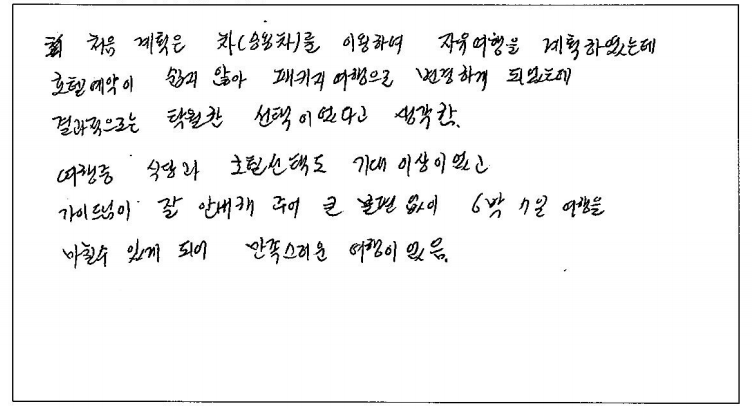 처음 계획은 차(승용차)를 이용하여 자유여행을 계획하였는데
호텔예약이 쉽지 않아 패키지 여행으로 변경하게 되었는데
결과적으로는 탁월한 선택이었다고 생각함.
여행중 식당과 호텔선택도 기대 이상이었고
가이드님이 잘 안내해 주어 큰 불편 없이 6박 7일 여행을
마칠수 있게 되어 만족스러운 여행이었음.